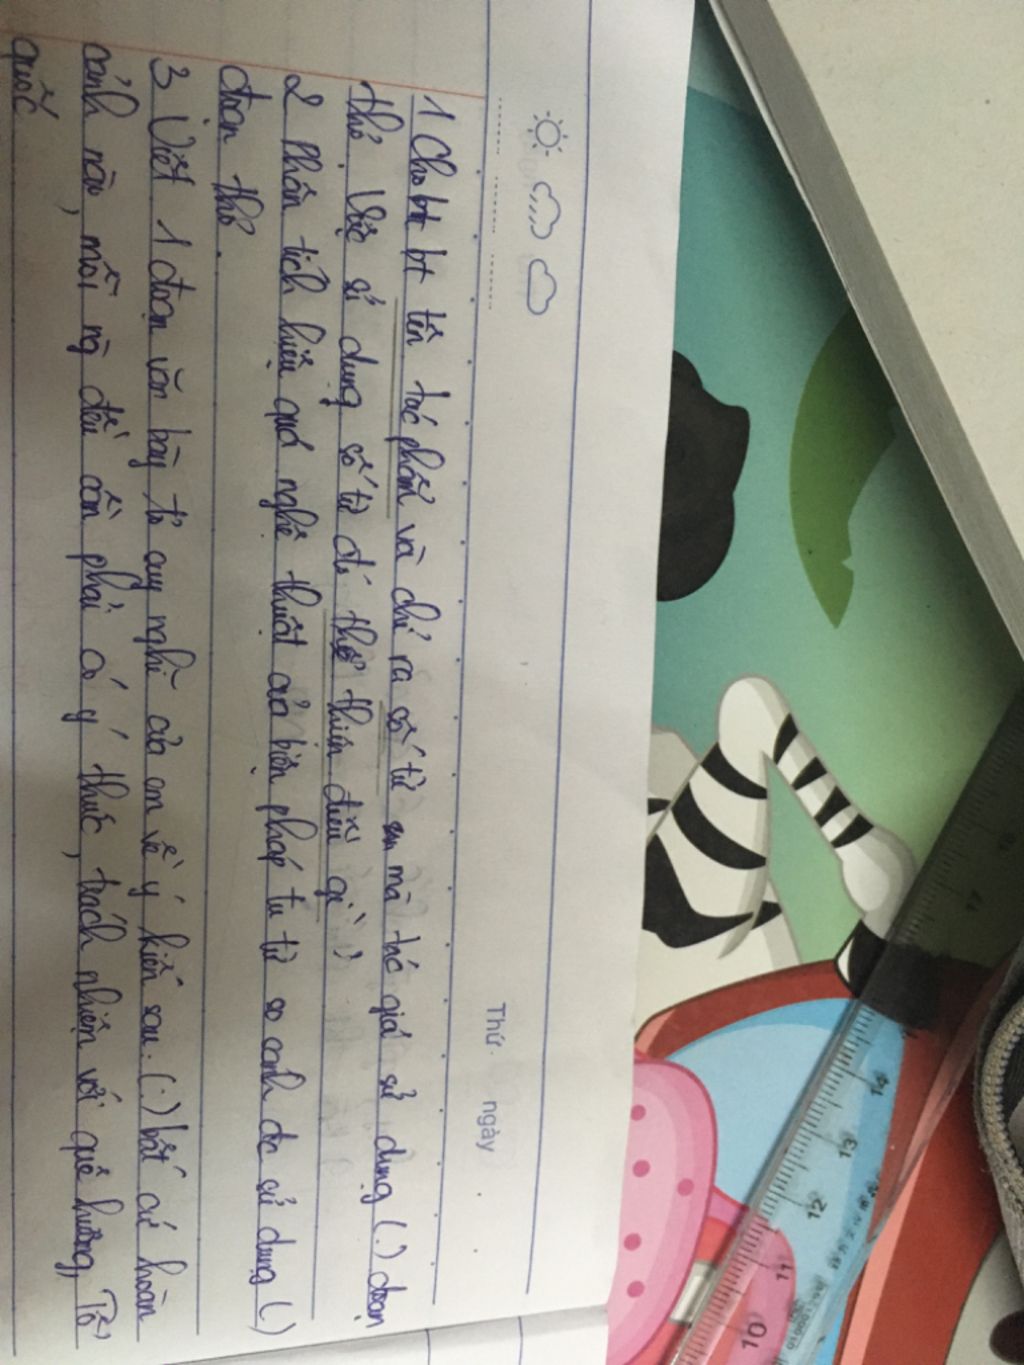 Thứ ngày
1 Cho bt bt tên tác phẩm và chỉ ra số từ mà tác giả sử dụng (.) đoạn
thơ Việc sử dụng số từ đó thể thiện điều gì?
2 Phân tích hiệu quả nghệ thuật của biện pháp tu từ so sánh đc sử dụng (.)
đoạn thơ.
3 Viết 1 đoạn văn bày tỏ suy nghĩ của em về ý kiến sau. (.) bất cứ hoàn
cảnh nào, mỗi ng đều cần phải có ý thức, trách nhiệm với quê hương, Tổ
quốc
17
14
13
12
11
10